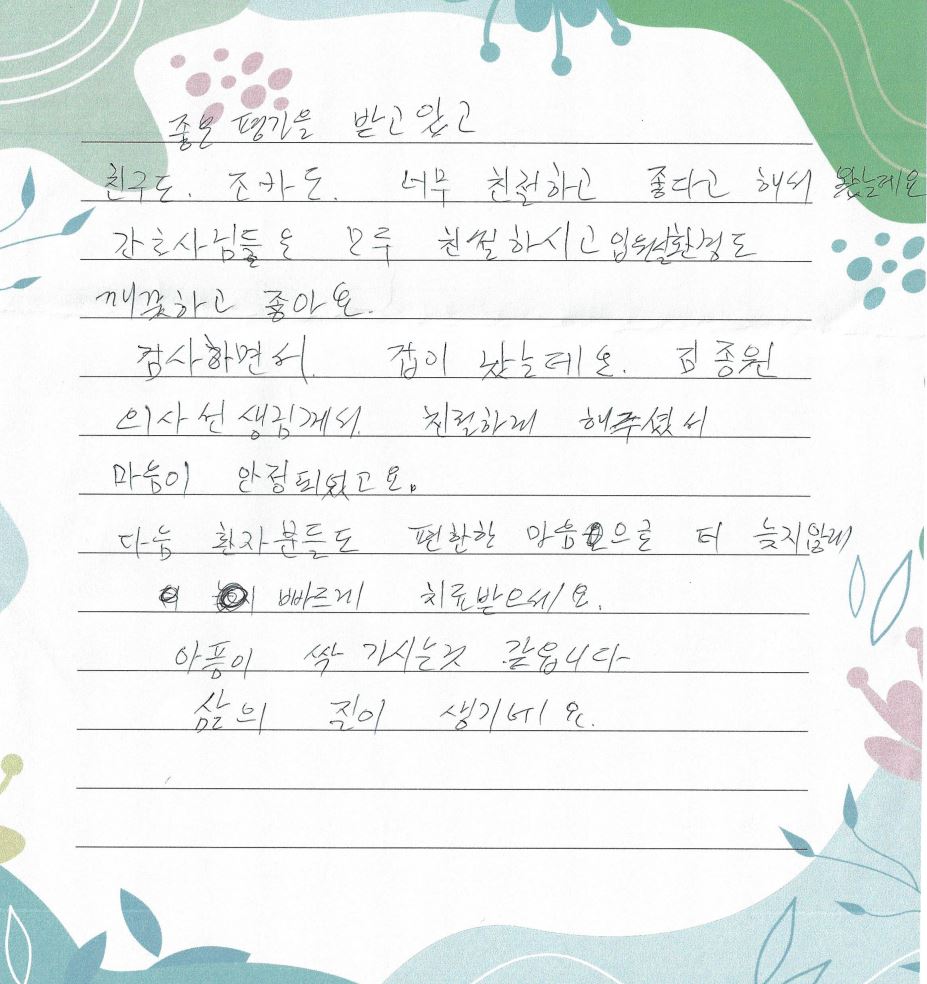 좋은 평가을 받고 있고
친구도. 조카도. 너무 친절하고 좋다고 해서 왔는데요
간호사님들은 모두 친절하시고 입원실환경도
깨끗하고 좋아요.
검사하면서. 겁이 났는데요. 김종원
의사선생님께서. 친절하게 해주셨서
마음이 안정되었고요.
다음 환자분들도 편한한 마음으로 더 늦지않게
빠르게 치료받으세요.
아픔이 싹 가시는것 같읍니다
삶의 질이 생기네요.